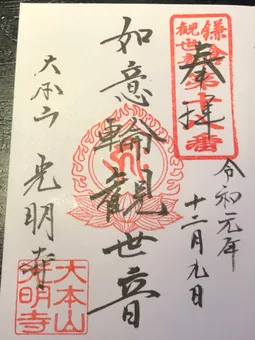 鎌倉
観世音
第十八番
奉拝
令和元年
十二月九日
如意輪觀世音
大本山 光明寺
大本山
光明寺